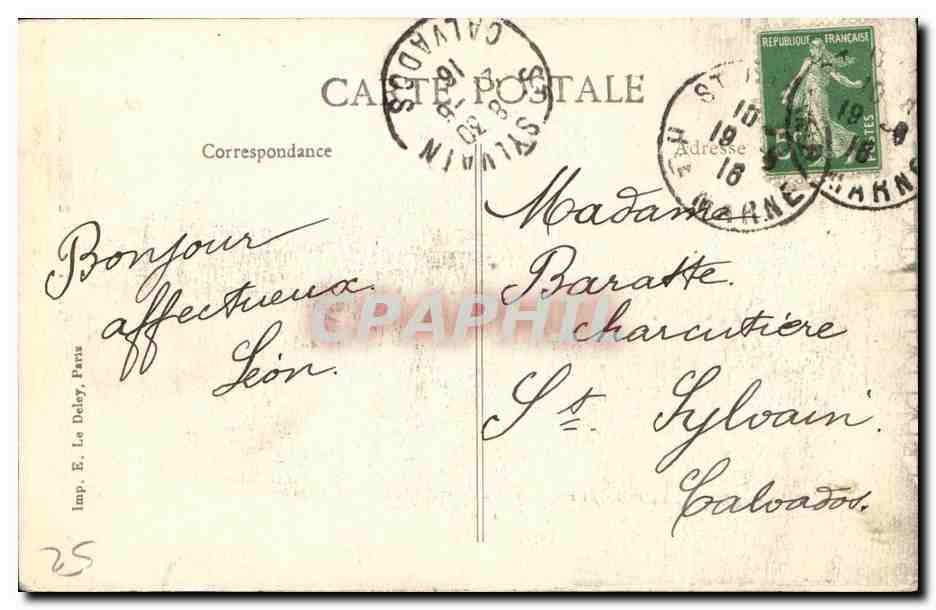 CARTE POSTALE
Correspondance
Adresse
ST SYLVAIN
CALVADOS
8 30
8 - 6
16
REPUBLIQUE FRANÇAISE
POSTES
ST
10
19 8
16
HTE MARNE
19 8
16
MARNE
Bonjour
affectueux.
Léon.
Madame
Baratte.
charcutière
St. Sylvain.
Calvados.
CPAPHIL
Imp. E. Le Deley, Paris
25